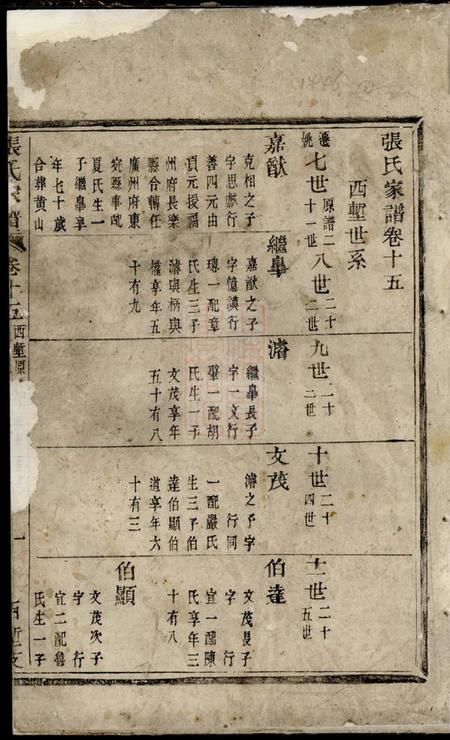 張氏家譜卷十五
西塹世系
遷姚七世原譜二十一世
八世二十二世
九世二十三世
十世二十四世
十一世二十五世
嘉猷
克相之子
字思猷行
善四元由
項元援福
州府長樂
縣合轉任
廣州府東
莞縣事配
夏氏生一
子繼皐享
年七十歲
合葬黃山
繼皐
嘉猷之子
字憶謨行
璁一配章
氏生三子
濬與柄與
權享年五
十有九
濬
繼皐長子
字一文行
肇一配胡
氏生一子
文茂享年
五十有八
文茂
濬之子字
行同
一配嚴氏
生三子伯
達伯顯伯
道享年六
十有三
伯達
文茂長子
字行
宜一配陳
氏享年三
十有八
伯顯
文茂次子
字行
宜二配魯
氏生一子
張氏家譜
卷十五
西塹原
一